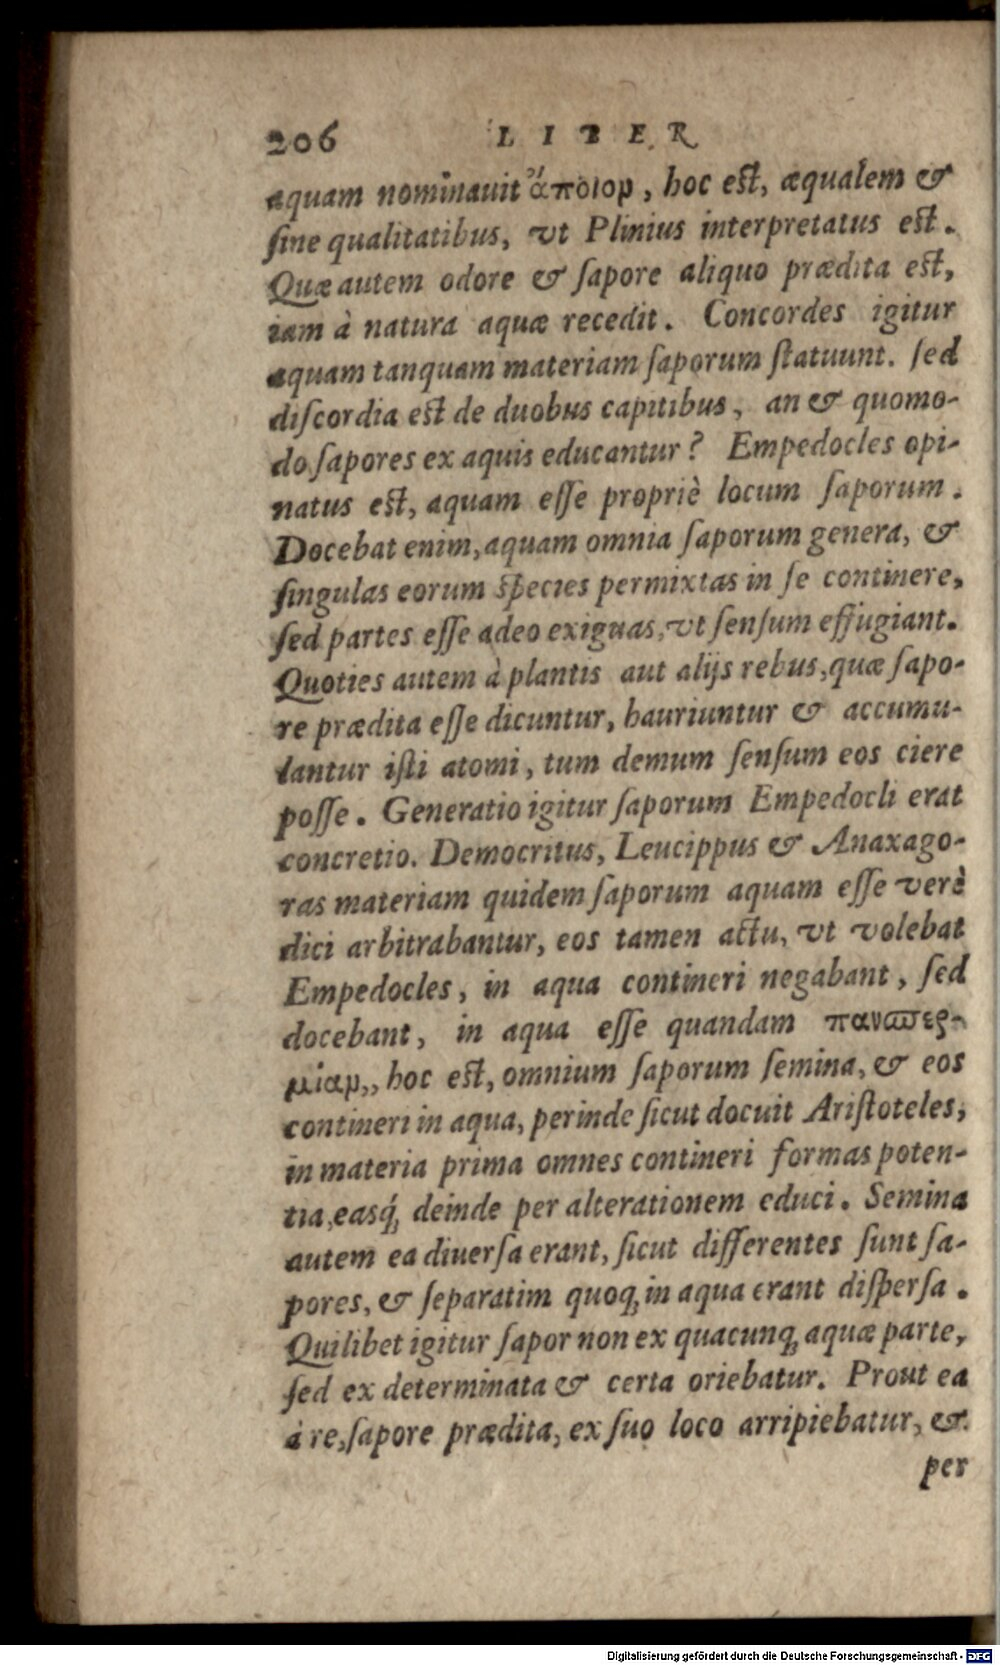 206 LIBER
aquam nominauit ἄποιομ, hoc est, æqualem &
sine qualitatibus, vt Plinius interpretatus est.
Quæ autem odore & sapore aliquo prædita est,
iam à natura aquæ recedit. Concordes igitur
aquam tanquam materiam saporum statuunt. sed
discordia est de duobus capitibus, an & quomo-
do sapores ex aquis educantur? Empedocles opi-
natus est, aquam esse propriè locum saporum.
Docebat enim, aquam omnia saporum genera, &
singulas eorum species permixtas in se continere,
sed partes esse adeo exiguas, vt sensum effugiant.
Quoties autem à plantis aut alijs rebus, quæ sapo-
re prædita esse dicuntur, hauriuntur & accumu-
lantur isti atomi, tum demum sensum eos ciere
posse. Generatio igitur saporum Empedocli erat
concretio. Democritus, Leucippus & Anaxago-
ras materiam quidem saporum aquam esse verè
dici arbitrabantur, eos tamen actu, vt volebat
Empedocles, in aqua contineri negabant, sed
docebant, in aqua esse quandam πανσπερ-
μίαμ,, hoc est, omnium saporum semina, & eos
contineri in aqua, perinde sicut docuit Aristoteles,
in materia prima omnes contineri formas poten-
tia, easq́; deinde per alterationem educi. Semina
autem ea diuersa erant, sicut differentes sunt sa-
pores, & separatim quoq; in aqua erant dispersa.
Quilibet igitur sapor non ex quacunq; aquæ parte,
sed ex determinata & certa oriebatur. Prout ea
à re, sapore prædita, ex suo loco arripiebatur, &
per
Digitalisierung gefördert durch die Deutsche Forschungsgemeinschaft - DFG